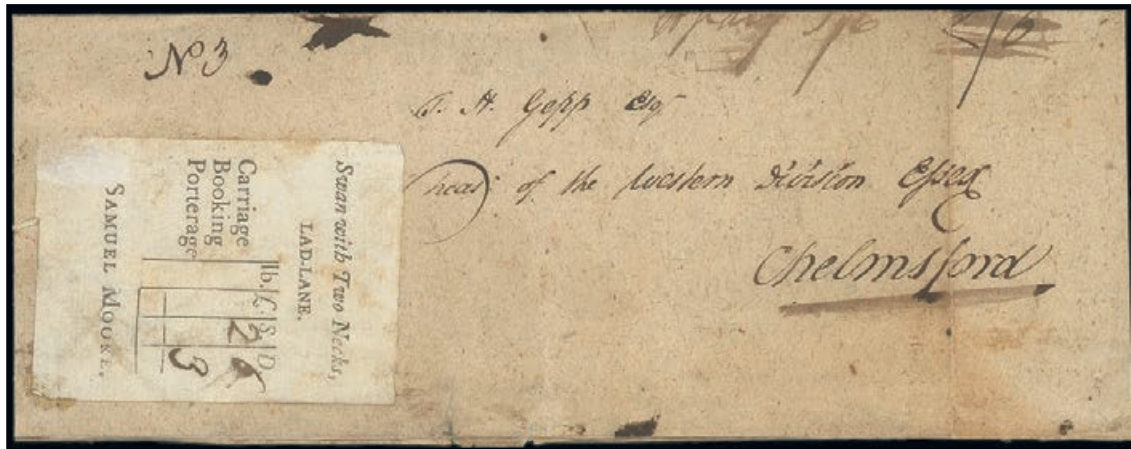 No 3
2/6
T. H. Gepp Esq
head of the Western Division Essex
Chelmsford
Swan with Two Necks,
LAD-LANE.
lb. £. S. D.
Carriage 2
Booking 3
Porterage
SAMUEL MOORE.